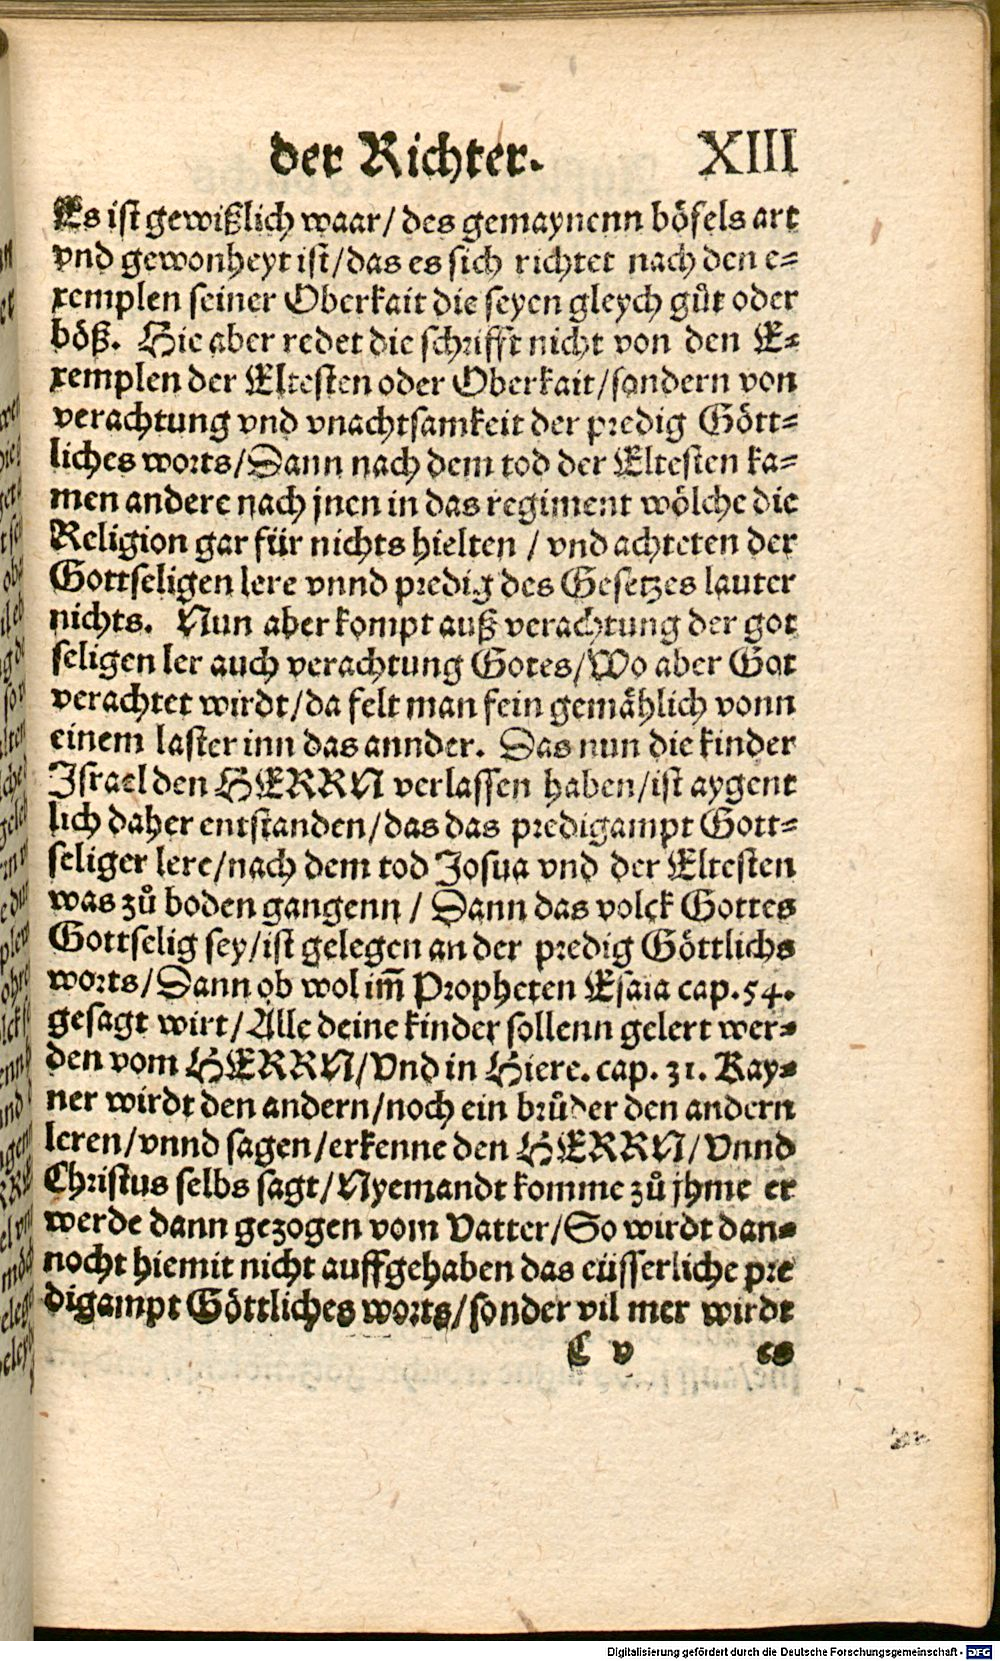 der Richter. XIII
Es ist gewißlich waar/ des gemaynenn böfels art
vnd gewonheyt ist/das es sich richtet nach den e-
xemplen seiner Oberkait die seyen gleych gůt oder
böß. Hie aber redet die schrifft nicht von den E-
xemplen der Eltesten oder Oberkait/sondern von
verachtung vnd vnachtsamkeit der predig Gött-
liches worts/Dann nach dem tod der Eltesten ka-
men andere nach jnen in das regiment wölche die
Religion gar für nichts hielten / vnd achteten der
Gottseligen lere vnnd predig des Gesetzes lauter
nichts. Nun aber kompt auß verachtung der got
seligen ler auch verachtung Gotes/Wo aber Got
verachtet wirdt/da felt man fein gemählich vonn
einem laster inn das annder. Das nun die kinder
Israel den HERRN verlassen haben/ist aygent
lich daher entstanden/das das predigampt Gott-
seliger lere/nach dem tod Josua vnd der Eltesten
was zů boden gangenn / Dann das volck Gottes
Gottselig sey/ist gelegen an der predig Göttlichs
worts/Dann ob wol im̄ Propheten Esaia cap.54.
gesagt wirt/Alle deine kinder sollenn gelert wer-
den vom HERRN/Vnd in Hiere. cap. 31. Kay-
ner wirdt den andern/noch ein brůder den andern
leren/vnnd sagen/erkenne den HERRN/Vnnd
Christus selbs sagt/Nyemandt komme zů jhme er
werde dann gezogen vom Vatter/So wirdt dan-
nocht hiemit nicht auffgehaben das eüsserliche pre
digampt Göttliches worts/sonder vil mer wirdt
C v es
Digitalisierung gefördert durch die Deutsche Forschungsgemeinschaft - DFG